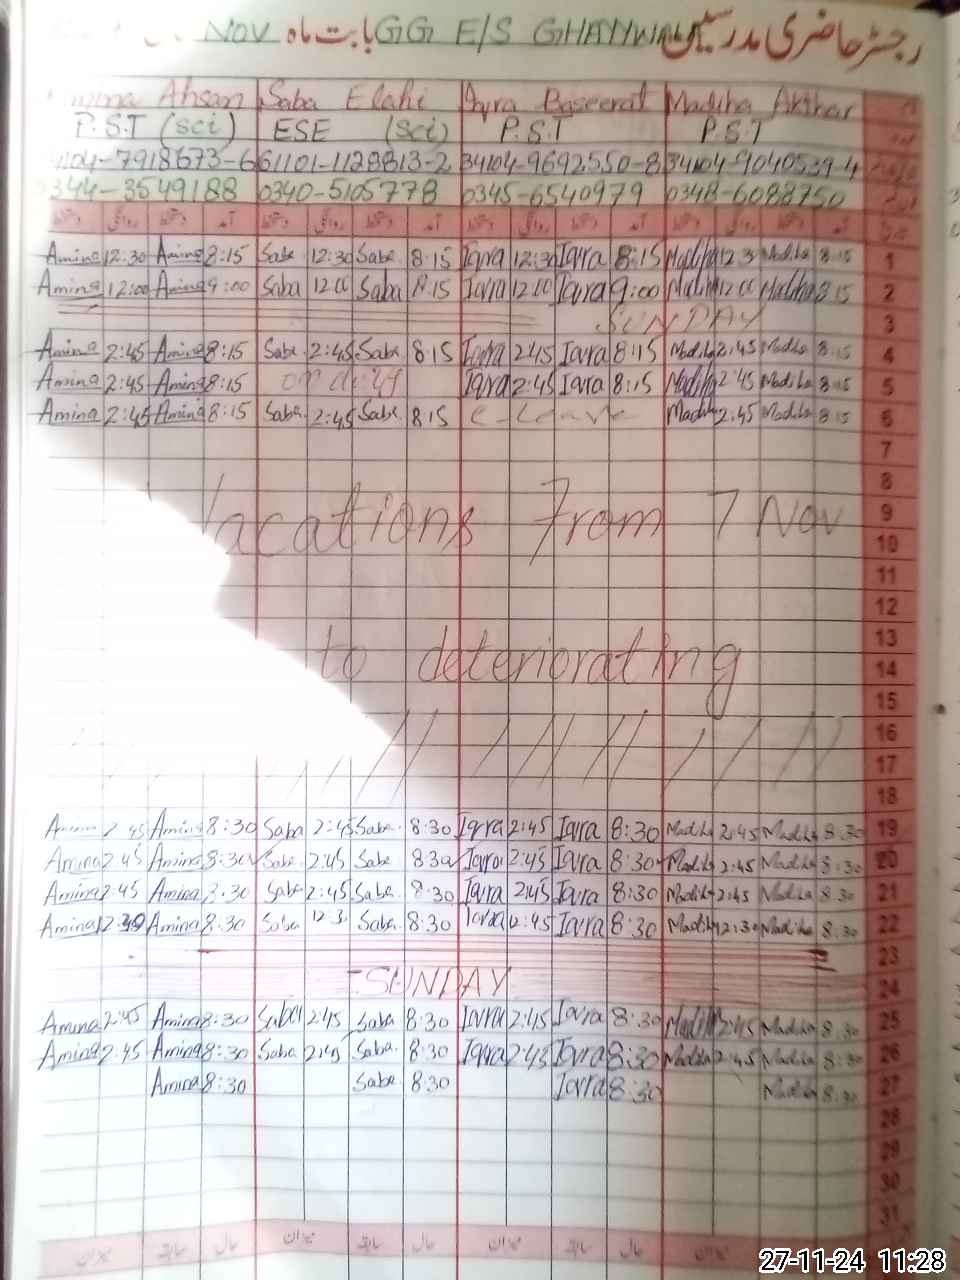 رجسٹر حاضری مدرسین GG E/S GHANWALA بابت ماہ NOV
Amina Ahsan Saba Elahi Iqra Baseerat Madiha Akhtar
P.S.T (sci) ESE (sci) P.S.T P.S.T
34104-7918673-6 61101-1128813-2 34104-9692550-8 34104-9040539-4
0344-3549188 0340-5105778 0345-6540979 0348-6088750
دستخط روانگی دستخط آمد دستخط روانگی دستخط آمد دستخط روانگی دستخط آمد دستخط روانگی دستخط آمد
Amina 12:30 Amina 8:15 Saba 12:30 Saba 8:15 Iqra 12:30 Iqra 8:15 Madiha 12:3 Madiha 8:15 1
Amina 12:00 Amina 9:00 Saba 12:00 Saba 8:15 Iqra 12:00 Iqra 9:00 Madiha 12:00 Madiha 8:15 2
SUNDAY 3
Amina 2:45 Amina 8:15 Saba 2:45 Saba 8:15 Iqra 2:45 Iqra 8:15 Madiha 2:45 Madiha 8:15 4
Amina 2:45 Amina 8:15 on duty Iqra 2:45 Iqra 8:15 Madiha 2:45 Madiha 8:15 5
Amina 2:45 Amina 8:15 Saba 2:45 Saba 8:15 c-Leave Madiha 2:45 Madiha 8:15 6
7
8
Vacations From 7 Nov 9
10
11
12
13
to deteriorating 14
15
16
17
18
Amina 2:45 Amina 8:30 Saba 2:45 Saba 8:30 Iqra 2:45 Iqra 8:30 Madiha 2:45 Madiha 8:30 19
Amina 2:45 Amina 8:30 Saba 2:45 Saba 8:30 Iqra 2:45 Iqra 8:30 Madiha 2:45 Madiha 8:30 20
Amina 2:45 Amina 8:30 Saba 2:45 Saba 8:30 Iqra 2:45 Iqra 8:30 Madiha 2:45 Madiha 8:30 21
Amina 12:30 Amina 8:30 Saba 12:3 Saba 8:30 Iqra 12:45 Iqra 8:30 Madiha 12:30 Madiha 8:30 22
23
SUNDAY 24
Amina 2:45 Amina 8:30 Saba 2:45 Saba 8:30 Iqra 2:45 Iqra 8:30 Madiha 2:45 Madiha 8:30 25
Amina 2:45 Amina 8:30 Saba 2:45 Saba 8:30 Iqra 2:45 Iqra 8:30 Madiha 2:45 Madiha 8:30 26
Amina 8:30 Saba 8:30 Iqra 8:30 Madiha 8:30 27
28
29
30
31
میزان سابقہ حال میزان سابقہ حال میزان سابقہ حال میزان
27-11-24 11:28